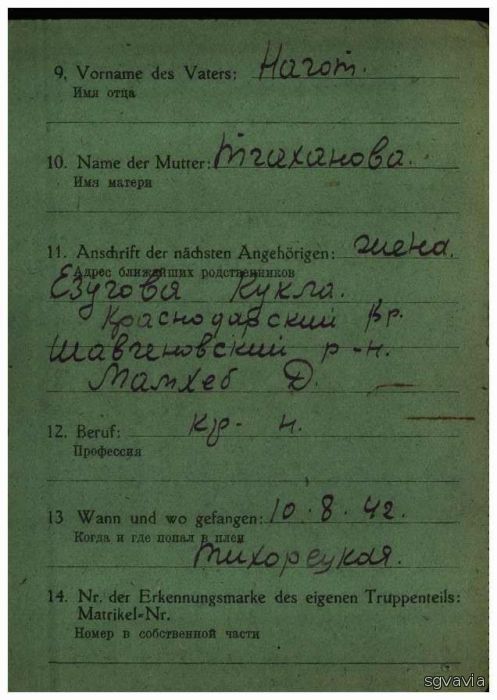 9. Vorname des Vaters: Нагот.
Имя отца
10. Name der Mutter: Тгаханова.
Имя матери
11. Anschrift der nächsten Angehörigen: жена.
Адрес ближайших родственников
Езугова Кукла.
Краснодарский кр.
Шавгеновский р-н.
Мамхег Д.
12. Beruf: кр-н.
Профессия
13 Wann und wo gefangen: 10.8.42.
Когда и где попал в плен
Тихорецкая.
14. Nr. der Erkennungsmarke des eigenen Truppenteils:
Matrikel-Nr.
Номер в собственной части
sgvavia